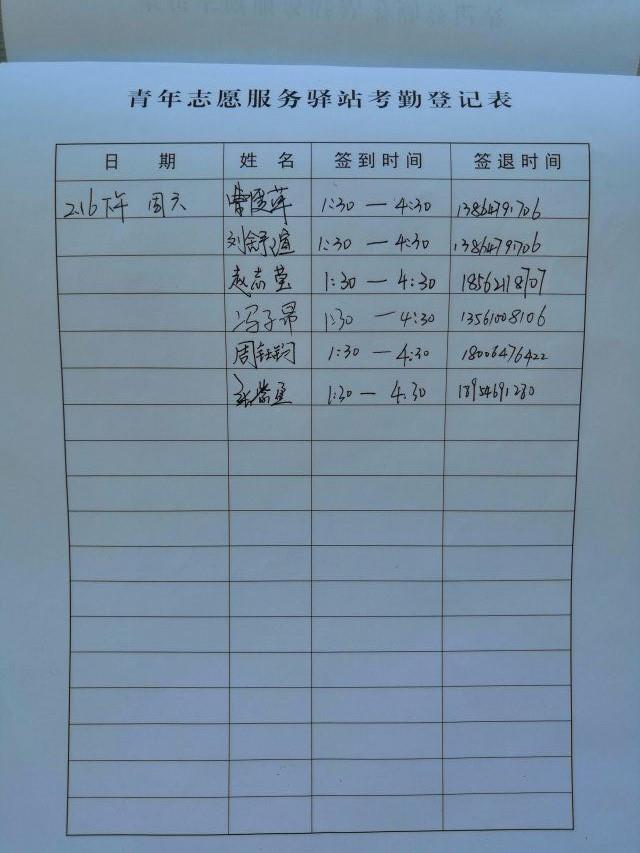 青年志愿服务驿站考勤登记表
日 期 姓 名 签到时间 签退时间
2.16下午 周六 1:30 — 4:30 13864791706
刘舒瑄 1:30 — 4:30 13864791706
赵志莹 1:30 — 4:30 18562118707
冯子昂 1:30 — 4:30 13561008106
周钰钧 1:30 — 4:30 18006476422
1:30 — 4:30 18954691280